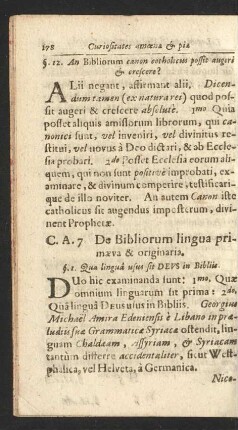 178 Curiositates amœnæ & piæ
§. 12. An Bibliorum canon catholicus possit augeri
& crescere?
ALii negant, affirmant alii. Dicen-
dum tamen (ex natura rei) quod pos-
sit augeri & crescere absolutè. 1mo Quia
posset aliquis amissorum librorum, qui ca-
nonici sunt, vel inveniri, vel divinitus re-
stitui, vel novus à Deo dictari, & ab Eccle-
sia probari. 2do Posset Ecclesia eorum ali-
quem, qui non sunt positivè improbati, ex-
aminare, & divinum comperire, testificari-
que de illo noviter. An autem Canon iste
catholicus sic augendus impostetum, divi-
nent Prophetæ.
C. A. 7 De Bibliorum lingua pri-
mæva & originaria.
§. 1. Qua linguâ usus sit DEVS in Bibliis
DUo hic examinanda sunt: 1mo. Quæ
omnium linguarum sit prima? 2do.
Quâ linguâ Deus usus in Bibliis. Georgius
Michaël Amira Edeniensis è Libano in præ-
ludiis suæ Grammaticæ Syriacæ ostendit, lin-
guam Chaldæam, Assyriam, & Syriacam
tantùm differre accidentaliter, sicut West-
phalica, vel Helveta, à Germanica.
Nico-